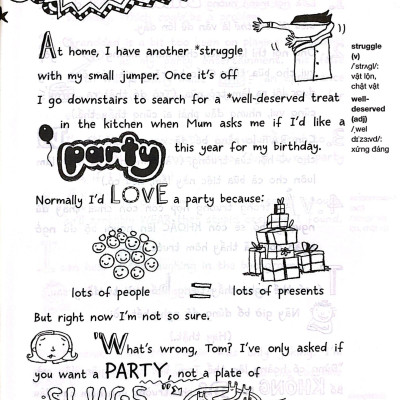 At home, I have another *struggle
with my small jumper. Once it's off
I go downstairs to search for a *well-deserved treat
in the kitchen when Mum asks me if I'd like a
party this year for my birthday.
Normally I'd LOVE a party because:
lots of people = lots of presents
But right now I'm not so sure.
"What's wrong, Tom? I've only asked if
you want a PARTY, not a plate of
SLUGS
struggle
(v)
/ˈstrʌgl/:
vật lộn,
chật vật
well-
deserved
(adj)
/ˌwel
dɪˈzɜːvd/:
xứng đáng